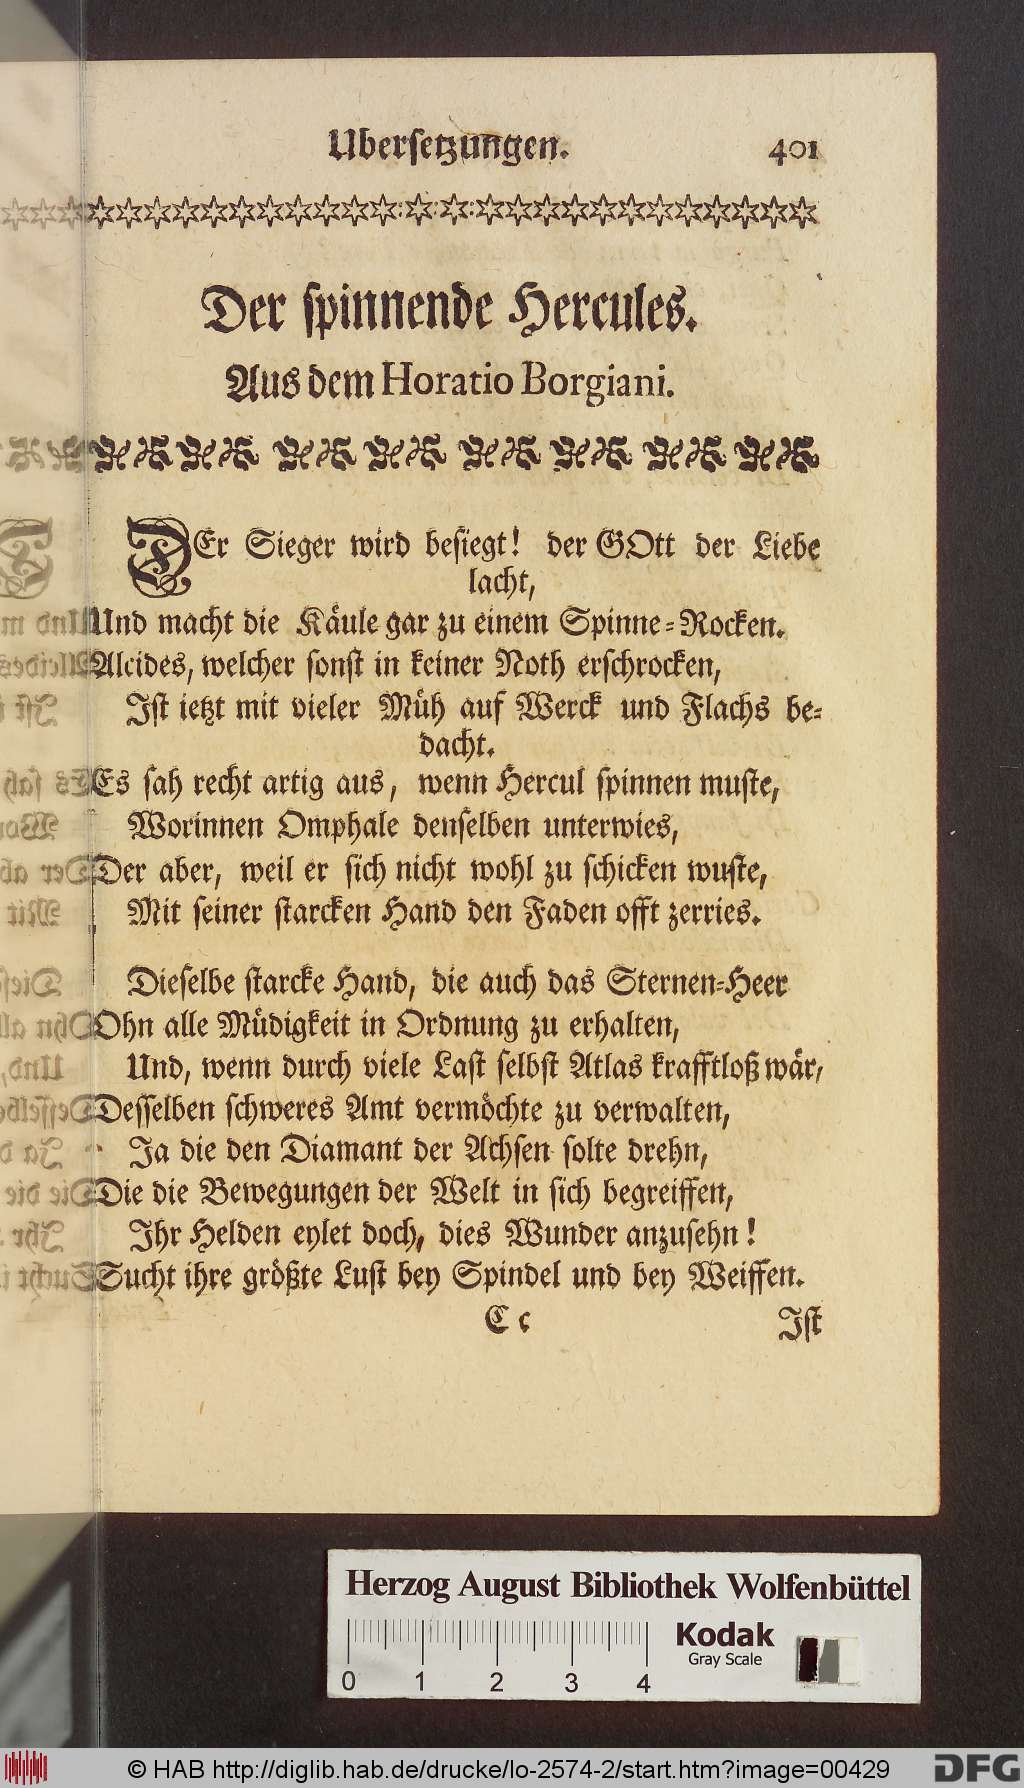 Ubersetzungen. 401
Der spinnende Hercules.
Aus dem Horatio Borgiani.
DEr Sieger wird besiegt! der GOtt der Liebe
lacht,
Und macht die Käule gar zu einem Spinne-Rocken.
Alcides, welcher sonst in keiner Noth erschrocken,
Ist ietzt mit vieler Müh auf Werck und Flachs be-
dacht.
Es sah recht artig aus, wenn Hercul spinnen muste,
Worinnen Omphale denselben unterwies,
Der aber, weil er sich nicht wohl zu schicken wuste,
Mit seiner starcken Hand den Faden offt zerries.
Dieselbe starcke Hand, die auch das Sternen-Heer
Ohn alle Müdigkeit in Ordnung zu erhalten,
Und, wenn durch viele Last selbst Atlas krafftloß wär,
Desselben schweres Amt vermöchte zu verwalten,
Ja die den Diamant der Achsen solte drehn,
Die die Bewegungen der Welt in sich begreiffen,
Ihr Helden eylet doch, dies Wunder anzusehn!
Sucht ihre größte Lust bey Spindel und bey Weiffen.
C c Ist
Herzog August Bibliothek Wolfenbüttel
Kodak
Gray Scale
0 1 2 3 4
© HAB http://diglib.hab.de/drucke/lo-2574-2/start.htm?image=00429
DFG